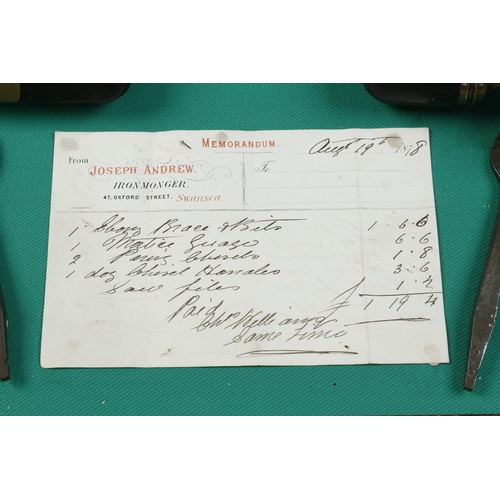 MEMORANDUM.
Augt 19th 1878
From
To
JOSEPH ANDREW,
IRONMONGER,
47, OXFORD STREET, Swansea.
1 Ebony Brace & Bits 1 6.6
1 Mortice Guage 6.6
2 Paring Chisels 1.8
1 doz Chisel Handles 3.6
Saw files 1.2
£ 1 19 4
Paid
Chs Williams
Same time